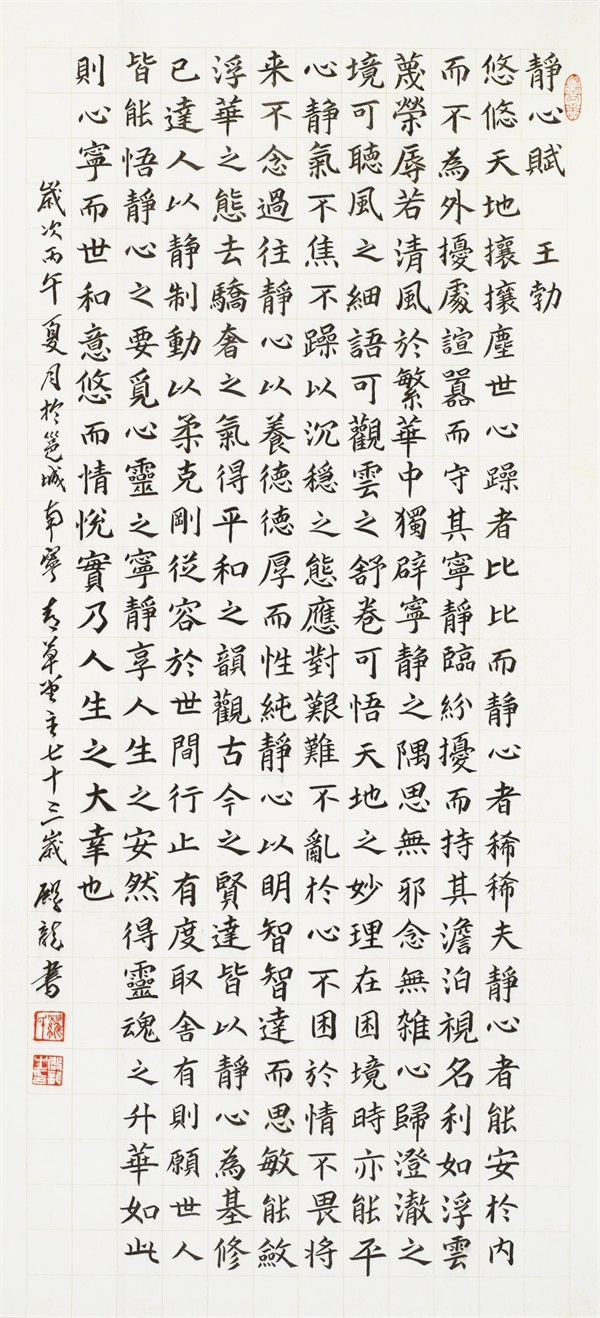 靜心賦 王勃
悠悠天地攘攘塵世心躁者比比而靜心者稀稀夫靜心者能安於内
而不為外擾處諠囂而守其寧靜臨紛擾而持其澹泊視名利如浮雲
蔑榮辱若清風於繁華中獨辟寧靜之隅思無邪念無雜心歸澄澈之
境可聽風之細語可觀雲之舒卷可悟天地之妙理在困境時亦能平
心靜氣不焦不躁以沉穩之態應對艱難不亂於心不困於情不畏將
来不念過往靜心以養德德厚而性純靜心以明智智達而思敏能斂
浮華之態去驕奢之氣得平和之韻觀古今之賢達皆以靜心為基修
己達人以静制動以柔克剛從容於世間行止有度取舍有則願世人
皆能悟靜心之要覓心靈之寧靜享人生之安然得靈魂之升華如此
則心寧而世和意悠而情悅實乃人生之大幸也
歲次丙午夏月於邕城南寧青草堂主七十三歲龍書